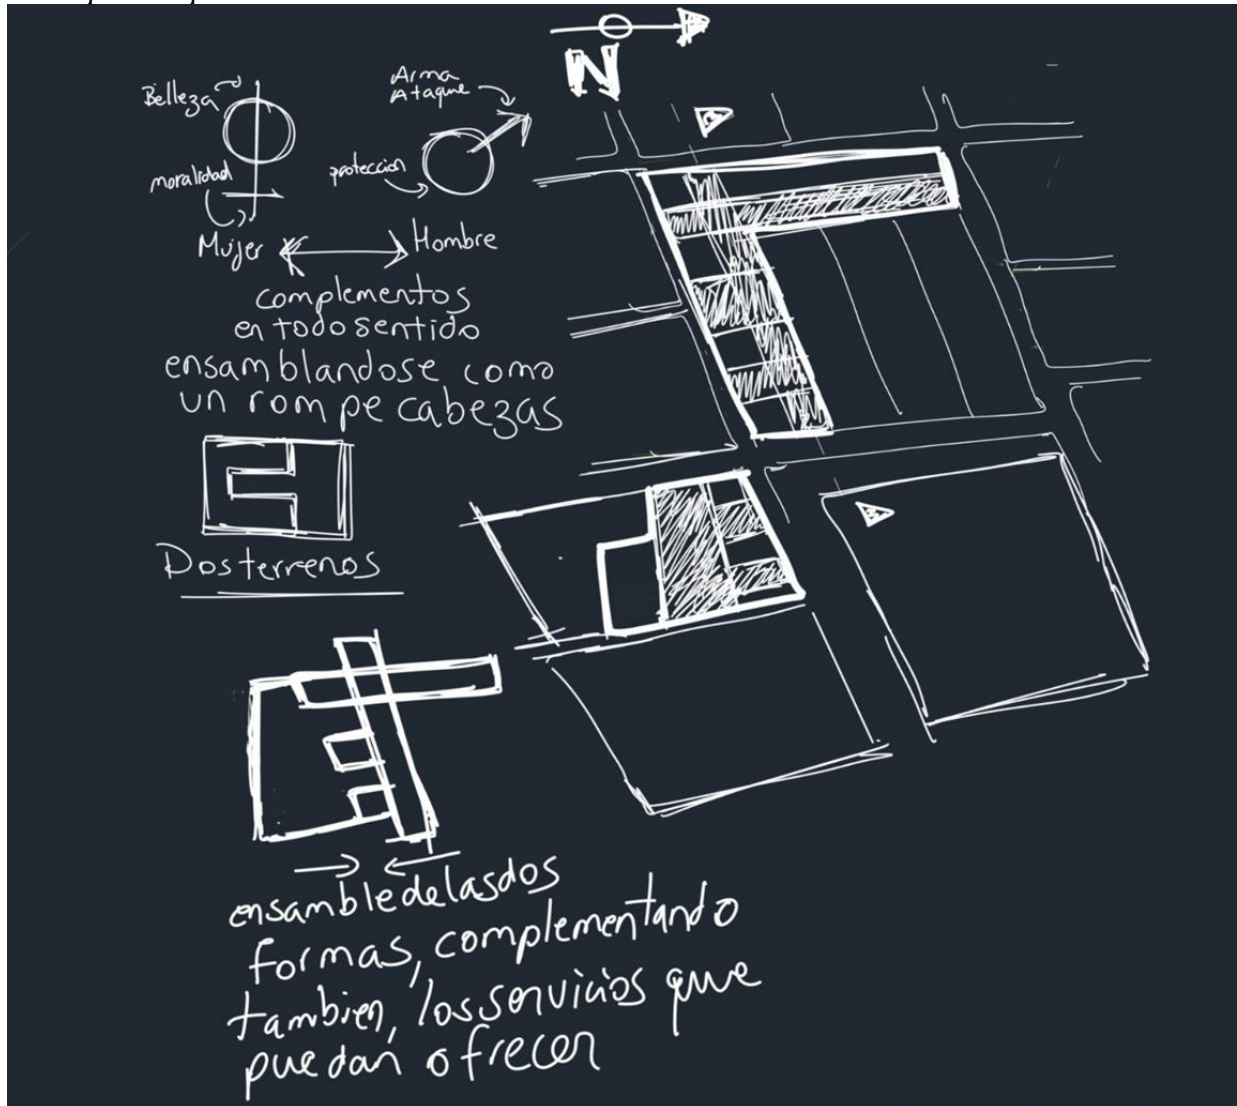 N
Belleza
moralidad
Mujer
Arma
Ataque
proteccion
Hombre
complementos
en todo sentido
ensamblandose como
un rompecabezas
Dos terrenos
ensamble de las dos
formas, complementando
tambien, los servicios que
puedan ofrecer